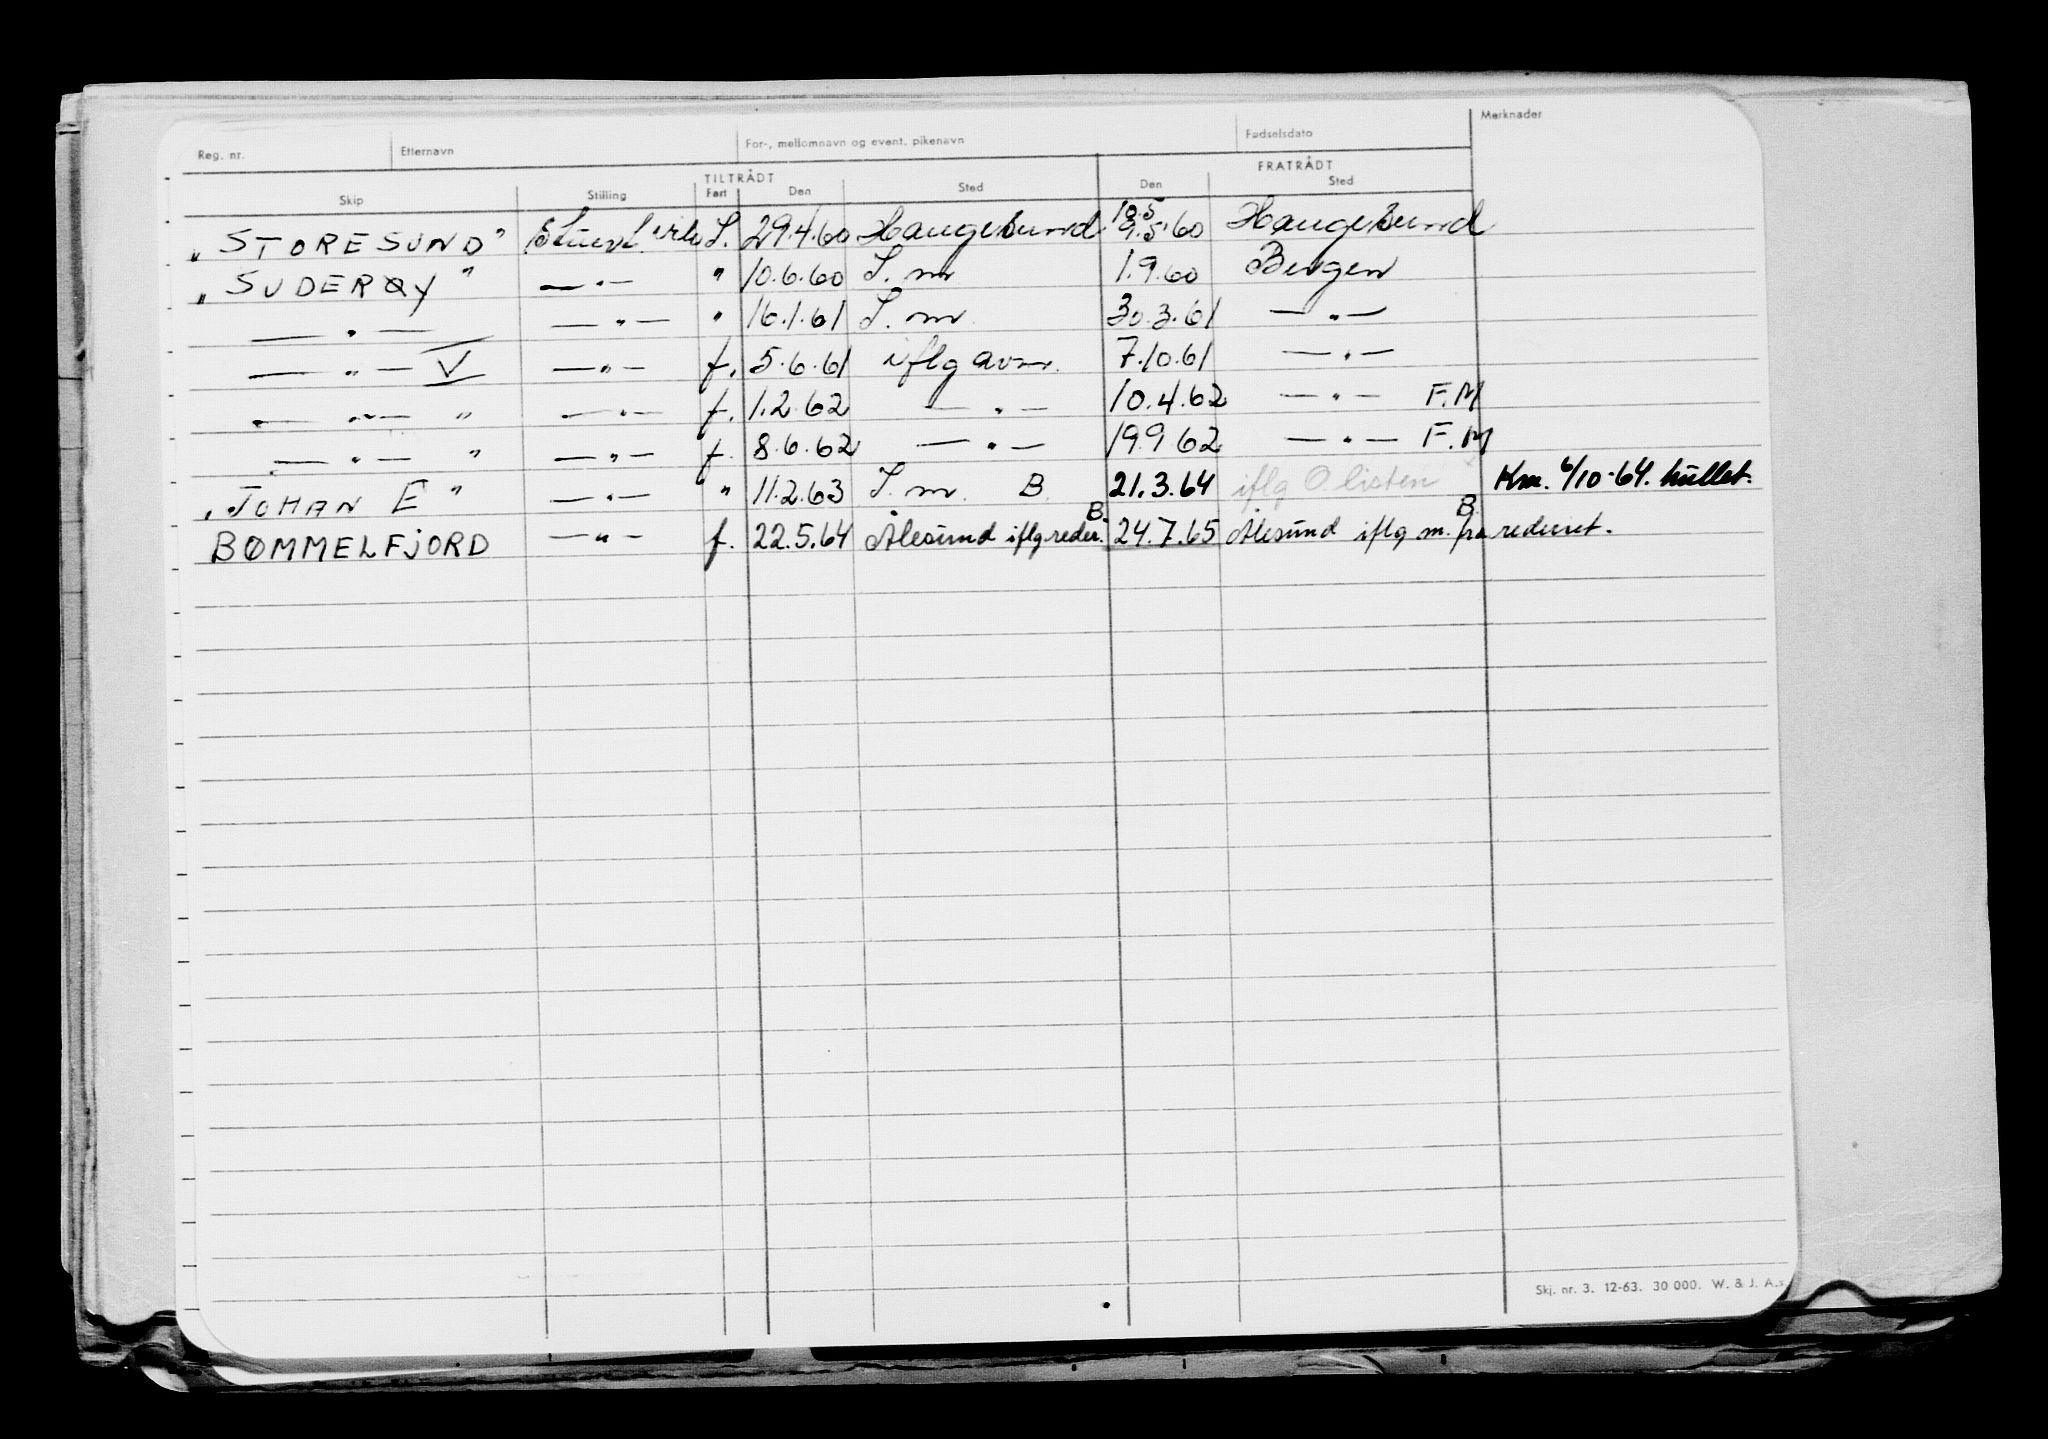 Reg. nr. Etternavn For-, mellomnavn og event. pikenavn Fødselsdato Merknader
TILTRÅDT FRATRÅDT
Skip Stilling Fart Den Sted Den Sted
10.5
"STORESUND" 29.4.60 Haugesund 9.5.60 Haugesund
"SUDERØY" — " — " 10.6.60 1.9.60 Bergen
— " — — " — " 16.1.61 30.3.61 — " —
— " — V — " — f. 5.6.61 iflg avm. 7.10.61 — " —
— " — " — " — f. 1.2.62 — " — 10.4.62 — " — F.M
— " — " — " — f. 8.6.62 — " — 19.9.62 — " — F.M
"JOHAN E" — " — " 11.2.63 B. 21.3.64 iflg O.listen Km. 6/10-64. hullet.
BØMMELFJORD — " — f. 22.5.64 Ålesund iflg reder. B. 24.7.65 Ålesund iflg m. fra rederiet. B.
Skj. nr. 3. 12-63. 30 000. W. & J. A.s